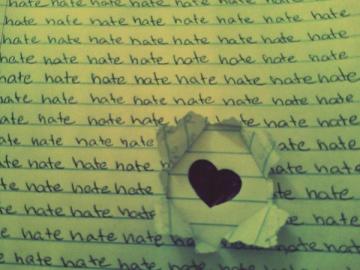 hate hate hate hate hate hate hate
hate hate hate hate hate hate hate hate
hate hate hate hate hate hate hate hate
hate hate hate hate hate hate hate hate
hate hate hate hate hate hate hate hate
hate hate hate hate hate hate hate hate
hate hate hate hate hate hate hate hate
hate hate hate hate hate
hate hate hate hate hate
hate hate hate hate hate
hate hate hate hate hate
hate hate hate hate hate hate
hate hate hate hate hate hate hate hate